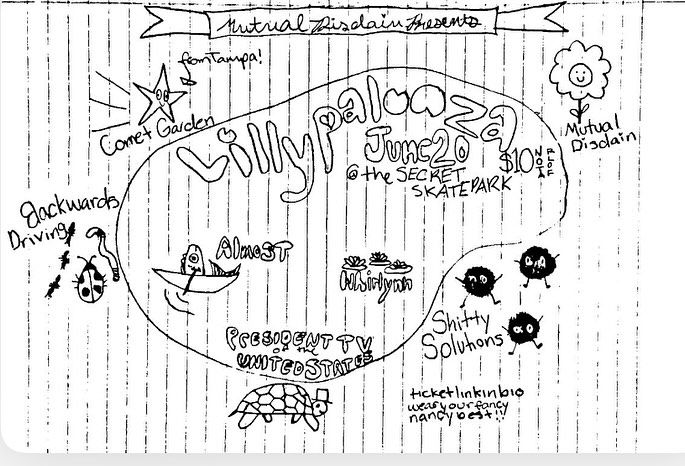 Mutual Disdain Presents
from Tampa!
Comet Garden
Lillypalooza
June 20
@ the SECRET
SKATEPARK
$10
NOTA
FLOF
Mutual
Disdain
Backwards
Driving
Almost
Whirlynn
PRESIDENT TV
of the
UNITED STATES
Shitty
Solutions
ticket link in bio
wear your fancy
nancy best!!!